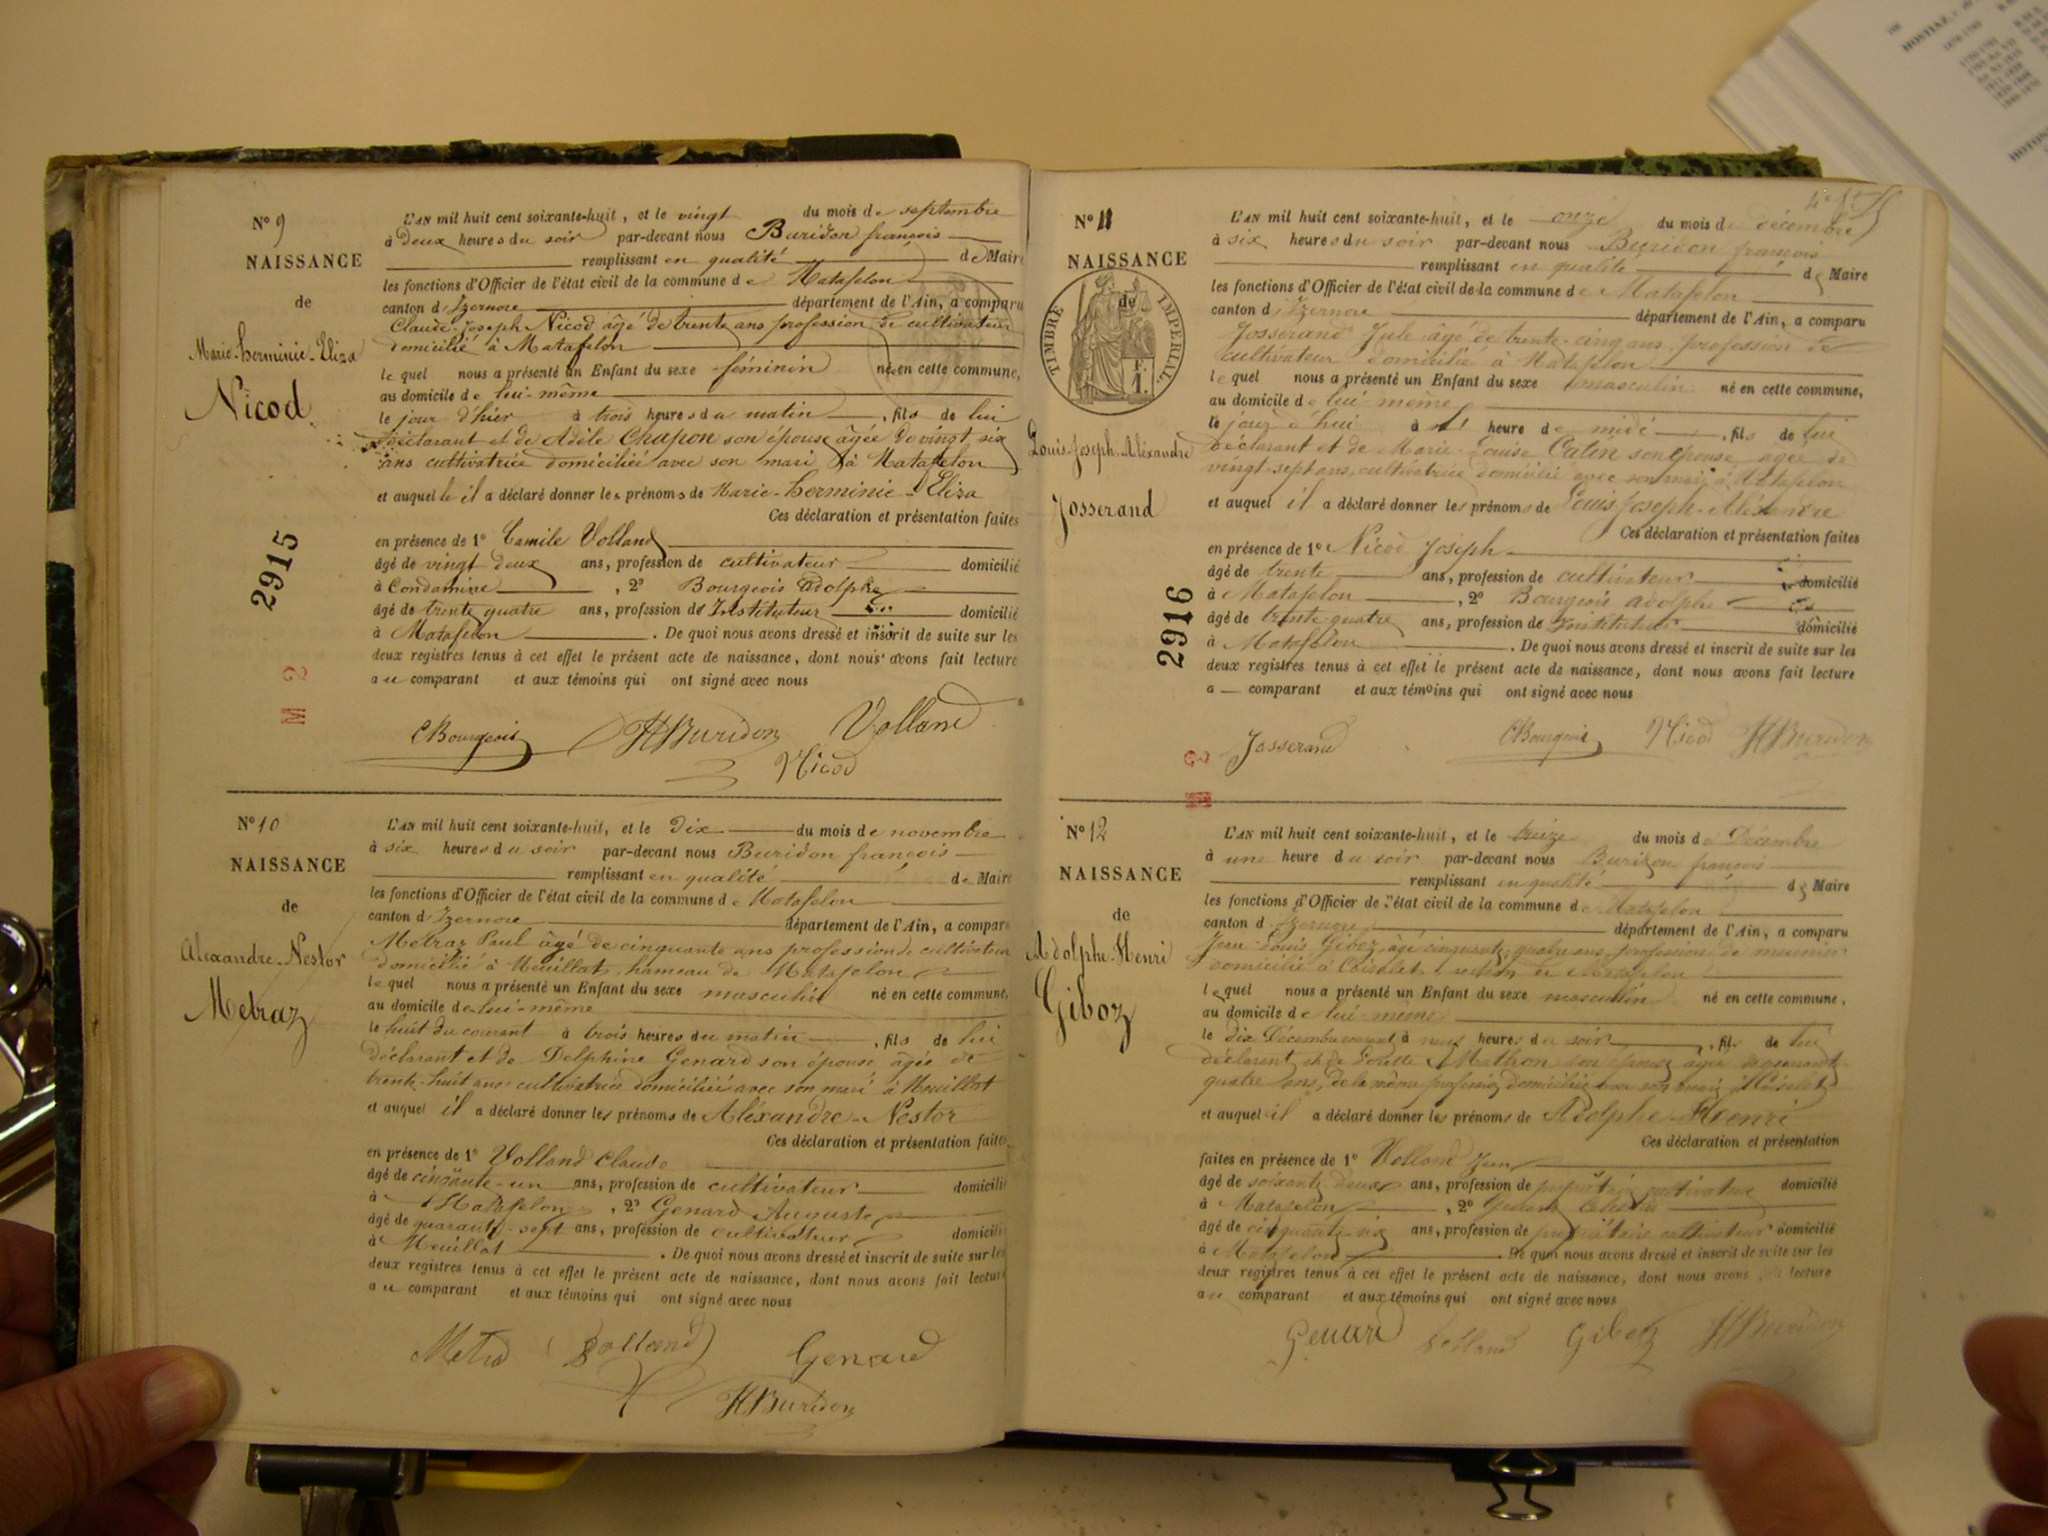 N° 9
NAISSANCE
de
Marie-herminie-Eliza
Nicod
2915
M 2
L'AN mil huit cent soixante-huit, et le vingt du mois de septembre
à deux heures du soir par-devant nous Buridon françois
remplissant en qualité de Maire
les fonctions d'Officier de l'état civil de la commune de Matafelon
canton d'Izernore département de l'Ain, a comparu
Claude-Joseph Nicod âgé de trente ans profession de cultivateur
domicilié à Matafelon
lequel nous a présenté un Enfant du sexe féminin né en cette commune,
au domicile de lui-même
le jour d'hier à trois heures du matin, fils de lui
déclarant et de Adèle Chapon son épouse âgée de vingt six
ans cultivatrice domiciliée avec son mari à Matafelon
et auquel il a déclaré donner les prénoms de Marie-herminie-Eliza
Ces déclaration et présentation faites
en présence de 1° Camile Volland
âgé de vingt deux ans, profession de cultivateur domicilié
à Condamine, 2° Bourgeois adolphe
âgé de trente quatre ans, profession d'Instituteur domicilié
à Matafelon. De quoi nous avons dressé et inscrit de suite sur les
deux registres tenus à cet effet le présent acte de naissance, dont nous avons fait lecture
au comparant et aux témoins qui ont signé avec nous
CBourgeois HBuridon Volland
Nicod
N° 10
NAISSANCE
de
Alexandre-Nestor
Metraz
L'AN mil huit cent soixante-huit, et le dix du mois de novembre
à six heures du soir par-devant nous Buridon françois
remplissant en qualité de Maire
les fonctions d'Officier de l'état civil de la commune de Matafelon
canton d'Izernore département de l'Ain, a comparu
Metraz Paul âgé de cinquante ans profession de cultivateur
domicilié à Heuillat hameau de Matafelon
lequel nous a présenté un Enfant du sexe masculin né en cette commune,
au domicile de lui-même
le huit du courant à trois heures du matin, fils de lui
déclarant et de Delphine Genard son épouse âgée de
trente-huit ans cultivatrice domiciliée avec son mari à Heuillat
et auquel il a déclaré donner les prénoms de Aléxandre-Nestor
Ces déclaration et présentation faites
en présence de 1° Volland Claude
âgé de cinquante-un ans, profession de cultivateur domicilié
à Matafelon, 2° Genard Auguste
âgé de quarante-sept ans, profession de cultivateur domicilié
à Heuillat. De quoi nous avons dressé et inscrit de suite sur les
deux registres tenus à cet effet le présent acte de naissance, dont nous avons fait lecture
au comparant et aux témoins qui ont signé avec nous
Volland Genard
HBuridon
N° 11
NAISSANCE
de
TIMBRE IMPERIAL
1 F.
Louis-Joseph-Aléxandre
Josserand
2916
M 2
L'AN mil huit cent soixante-huit, et le onze du mois de décembre
à six heures du soir par-devant nous Buridon françois
remplissant en qualité de Maire
les fonctions d'Officier de l'état civil de la commune de Matafelon
canton d'Izernore département de l'Ain, a comparu
Josserand Jule âgé de trente-cinq ans profession de
cultivateur domicilié à Matafelon
lequel nous a présenté un Enfant du sexe masculin né en cette commune,
au domicile de lui-même
le jour d'hui à heure de midi, fils de lui
déclarant et de Marie-Louise Catin son épouse agée de
vingt-sept ans, cultivatrice domicilié avec son mari à Matafelon
et auquel il a déclaré donner les prénoms de Louis Joseph-Aléxandre
Ces déclaration et présentation faites
en présence de 1° Nicod Joseph
âgé de trente ans, profession de cultivateur domicilié
à Matafelon, 2° Bourgeois adolphe
âgé de trente quatre ans, profession de Instituteur domicilié
à Matafelon. De quoi nous avons dressé et inscrit de suite sur les
deux registres tenus à cet effet le présent acte de naissance, dont nous avons fait lecture
a comparant et aux témoins qui ont signé avec nous
Josserand CBourgeois Nicod HBuridon
N° 12
NAISSANCE
de
Adolphe-Henri
Giboz
L'AN mil huit cent soixante-huit, et le treize du mois de Décembre
à une heure du soir par-devant nous Buridon françois
remplissant en qualité de Maire
les fonctions d'Officier de l'état civil de la commune de Matafelon
canton d'Izernore département de l'Ain, a comparu
Jean-Louis Giboz âgé cinquante quatre ans profession de meunier
domicilié à section de Matafelon
lequel nous a présenté un Enfant du sexe masculin né en cette commune,
au domicile de lui-même
le dix Décembre courant à neuf heures du soir, fils de lui
déclarant et de son épouse âgée de quarante
quatre ans, de la même profession domiciliée avec son mari
et auquel il a déclaré donner les prénoms de Adolphe-Henri
Ces déclaration et présentation
faites en présence de 1° Volland Jean
âgé de soixante deux ans, profession de propriétaire cultivateur domicilié
à Matafelon, 2° Genard
âgé de cinquante six ans, profession de propriétaire cultivateur domicilié
à Matafelon. De quoi nous avons dressé et inscrit de suite sur les
deux registres tenus à cet effet le présent acte de naissance, dont nous avons fait lecture
au comparant et aux témoins qui ont signé avec nous
Genard Volland Giboz HBuridon